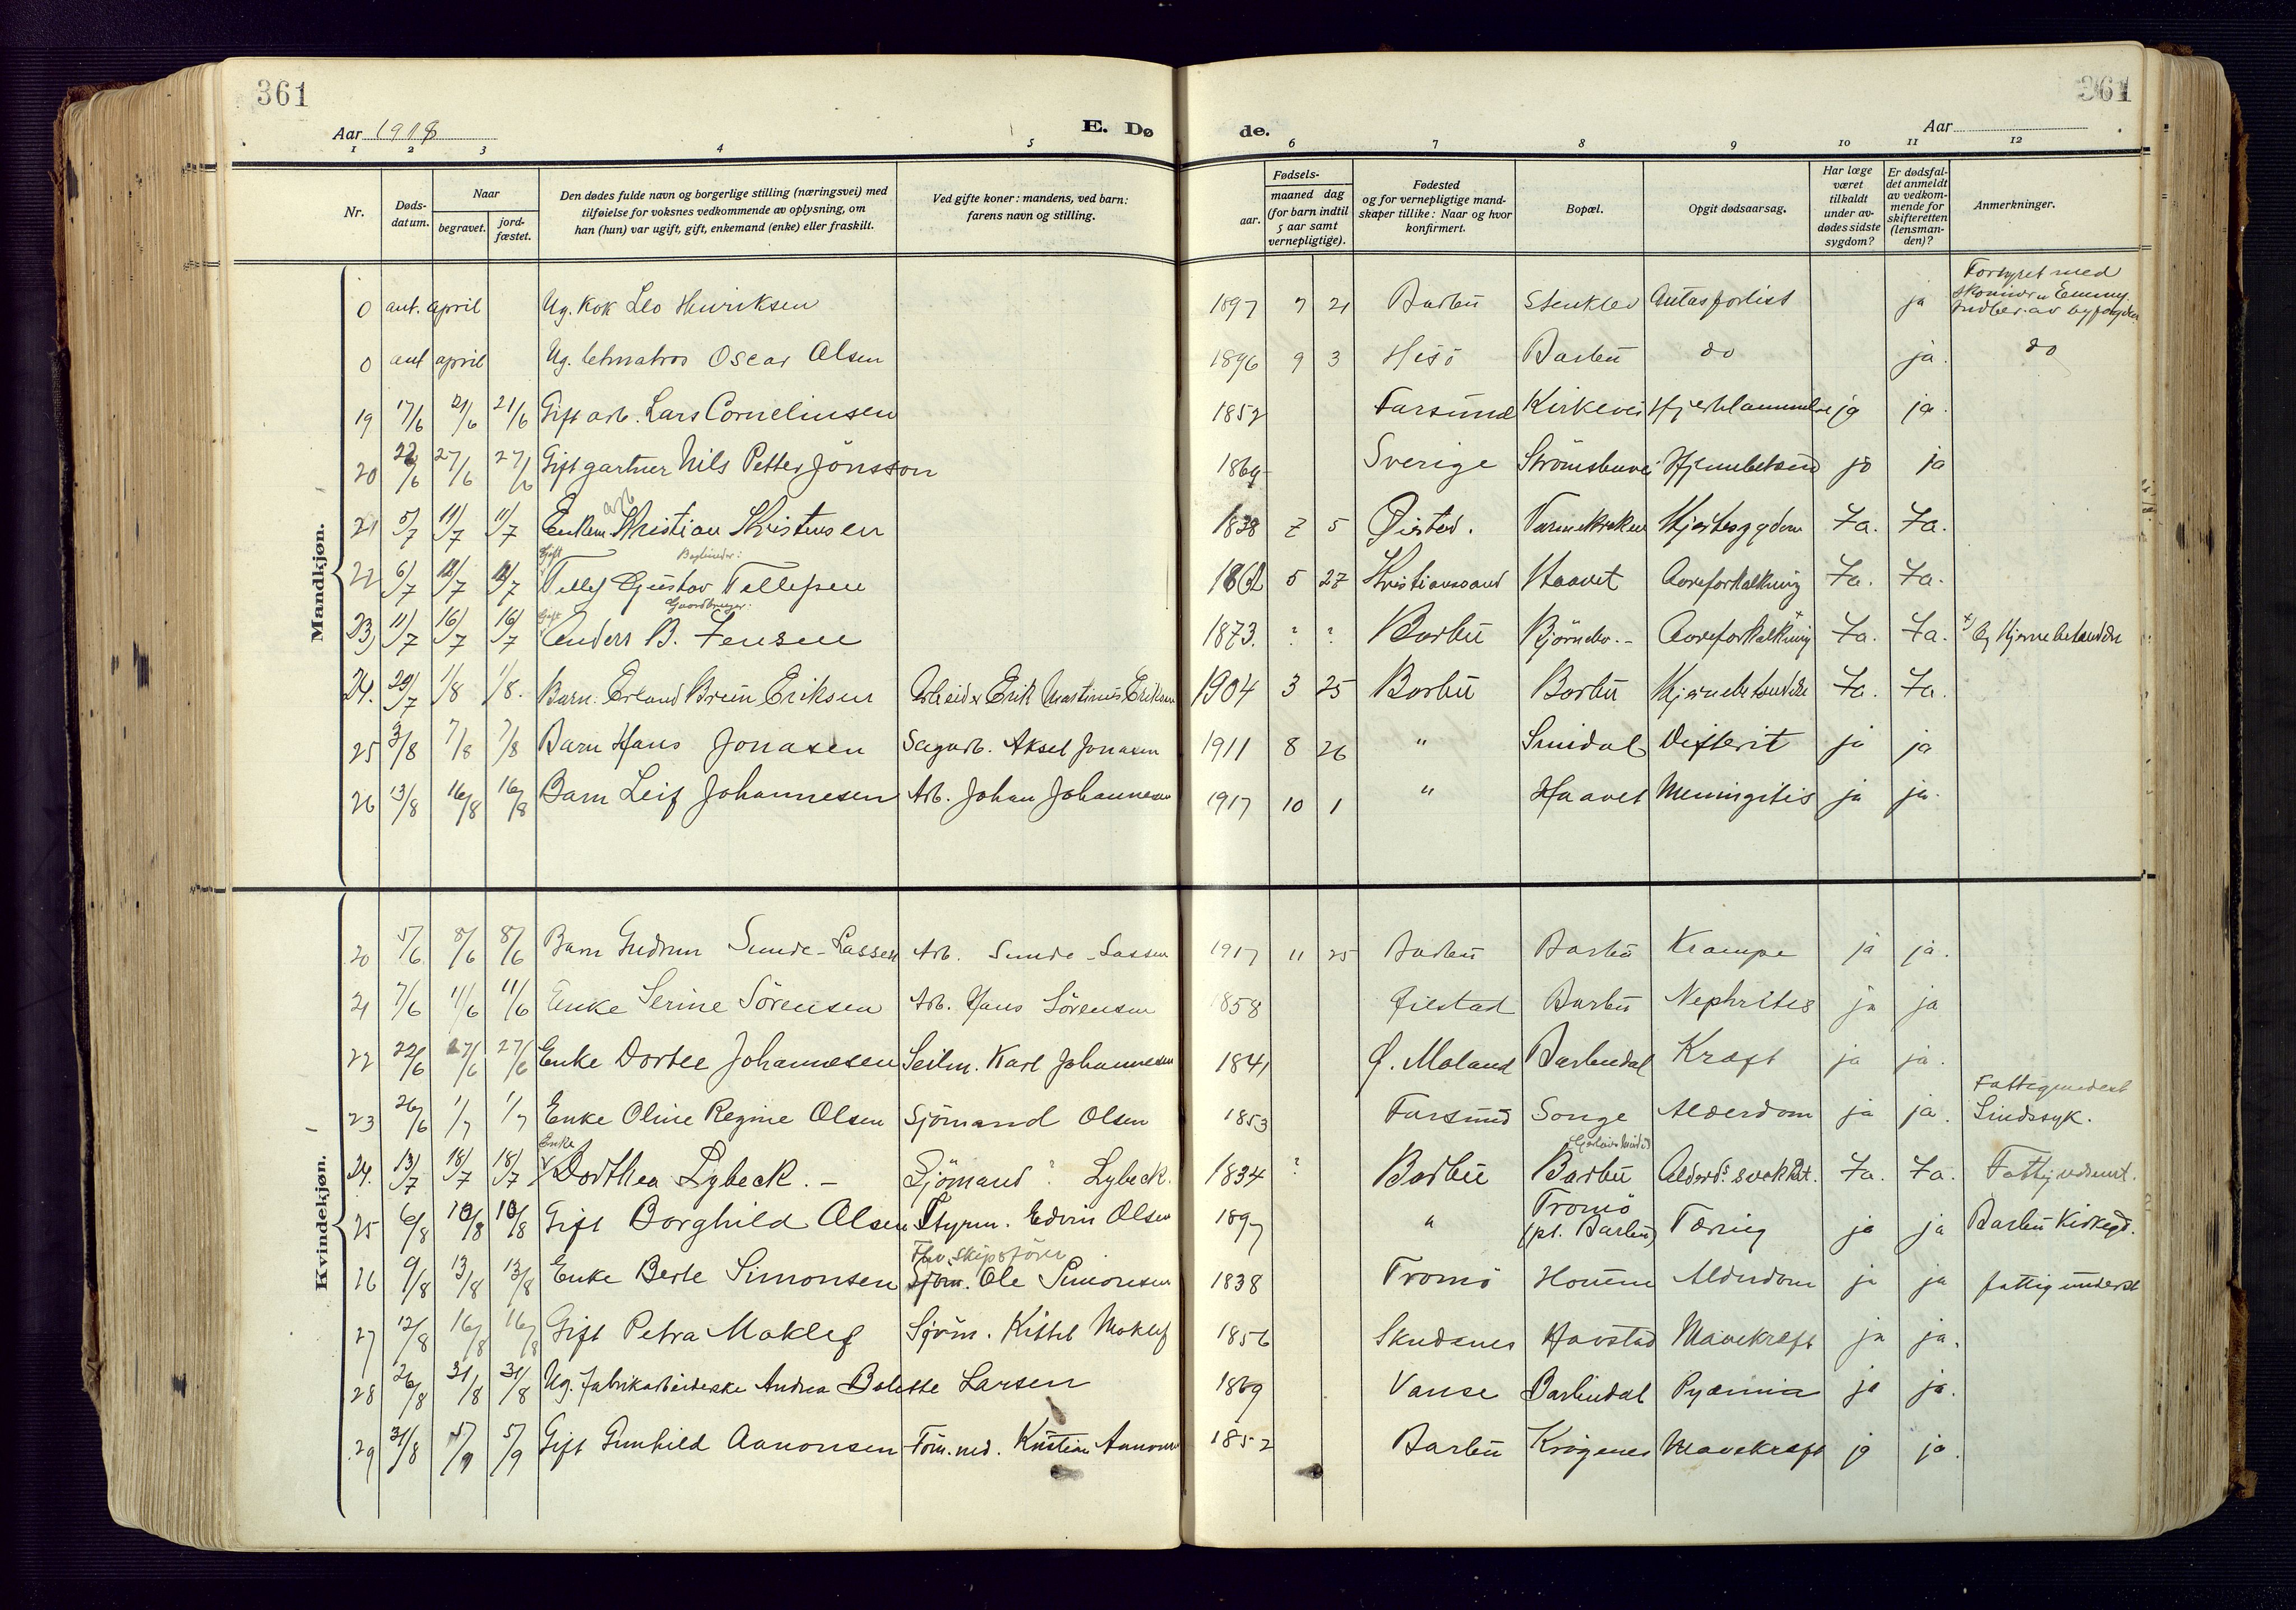 361
361
Aar 1918
E. Dø
de.
Aar
1 2 3 4 5 6 7 8 9 10 11 12
Nr.
Døds-
datum.
Naar
begravet.
jord-
fæstet.
Den dødes fulde navn og borgerlige stilling (næringsvei) med
tilføielse for voksnes vedkommende av oplysning, om
han (hun) var ugift, gift, enkemand (enke) eller fraskilt.
Ved gifte koner: mandens, ved barn:
farens navn og stilling.
Fødsels-
aar.
maaned dag
(for barn indtil
5 aar samt
vernepligtige).
Fødested
og for vernepligtige mand-
skaper tillike: Naar og hvor
konfirmert.
Bopæl.
Opgit dødsaarsag.
Har læge
været
tilkaldt
under av-
dødes sidste
sygdom?
Er dødsfal-
det anmeldt
av vedkom-
mende for
skifteretten
(lensman-
den)?
Anmerkninger.
Mandkjøn.
0 ant. april Ug. kok Leo Henriksen 1897 7 21 Barbu Stenklev Antas forlist ja
Forlyset med
Emmy
0 ant april Ug. letmatros Oscar Olsen 1896 9 3 Hisö Barbu do ja. do
19 17/6 21/6 21/6 Gift arb. Lars Corneliusen 1852 Farsund Kirkevei Hjertelammelse ja ja.
20 22/6 27/6 27/6 Gift gartner Nils Petter Jönsson 1869 Sverige Strömsbuvei ja ja
arb
21 5/7 11/7 11/7 Enkem Kristian Kristensen 1838 7 5 Øiestad. Hjertesygdom Ja. Ja.
Gift Bogbinder:
22 6/7 12/7 12/7 Tellef Gustav Tellefsen 1862 5 27 Kristianssand Haavet Aareforkalkning Ja. Ja.
Gift Gaardbruger.
23) 11/7 16/7 16/7 Anders B. Jensen 1873. ? ? Barbu Björnebo. - Aareforkalkning Ja. Ja. x) og Hjernebetændelse
24. 29/7 1/8 1/8. Barn: Erland Brun Eriksen Arbeider Erik Martinus Eriksen 1904 3 25 Barbu Barbu Hjernebetændelse Ja. Ja.
25 3/8 7/8 7/8 Barn Hans Jonasen Sagarb. Aksel Jonasen 1911 8 26 " Smidal Difterit ja ja
26 13/8 16/8 16/8 Barn Leif Johannesen Arb. Johan Johannesen 1917 10 1 " Haavet Meningitis ja ja.
Kvindekjøn.
20 5/6 8/6 8/6 Barn Gudrun Sunde-Lassen Arb. Sunde-Lassen 1917 11 25 Barbu Barbu Krampe ja ja.
21 7/6 11/6 11/6 Enke Serine Sörensen Arb. Hans Sörensen 1858 Øiestad Barbu Nephrites ja ja
22 22/6 27/6 27/6 Enke Dortee Johannesen Seilm. Karl Johannesen 1841 Ø. Moland Barbudal Kræft ja ja.
23 26/6 1/7 1/7 Enke Oline Regine Olsen Sjömand Olsen 1853 Farsund Songe Alderdom ja ja.
Fattigunderst
Sindssyk.
Enke
24. 13/7 18/7 18/7 Dorthea Lybeck. - Sjömand ? Lybeck. 1834 ? Barbu Barbu Alderd. svækket. Ja. Ja. Fattigunderst.
25 6/8 10/8 10/8 Gift Borghild Olsen Styrm. Edvin Olsen 1897 " Tromö
(pt. Barbu) Tæring ja ja Barbu Kirkegd.
Fhv. skipsförer
26 9/8 13/8 13/8 Enke Berte Simonsen Sjöm. Ole Simonsen 1838 Tromö Alderdom ja ja fattigunderst
27 12/8 16/8 16/8 Gift Petra Moklef Sjöm. Kittel Moklef 1856 Skudsnes Havstad Mavekræft ja ja.
28 26/8 31/8 31/8 Ug. fabrikarbeiderske Andrea Bolette Larsen 1869 Vanse Barbudal Pyæmia ja ja.
29 31/8 5/9 5/9 Gift Gunhild Aanonsen Töm.md. Kristian Aanonsen 1852 Barbu Krögenes Mavekræft ja ja.